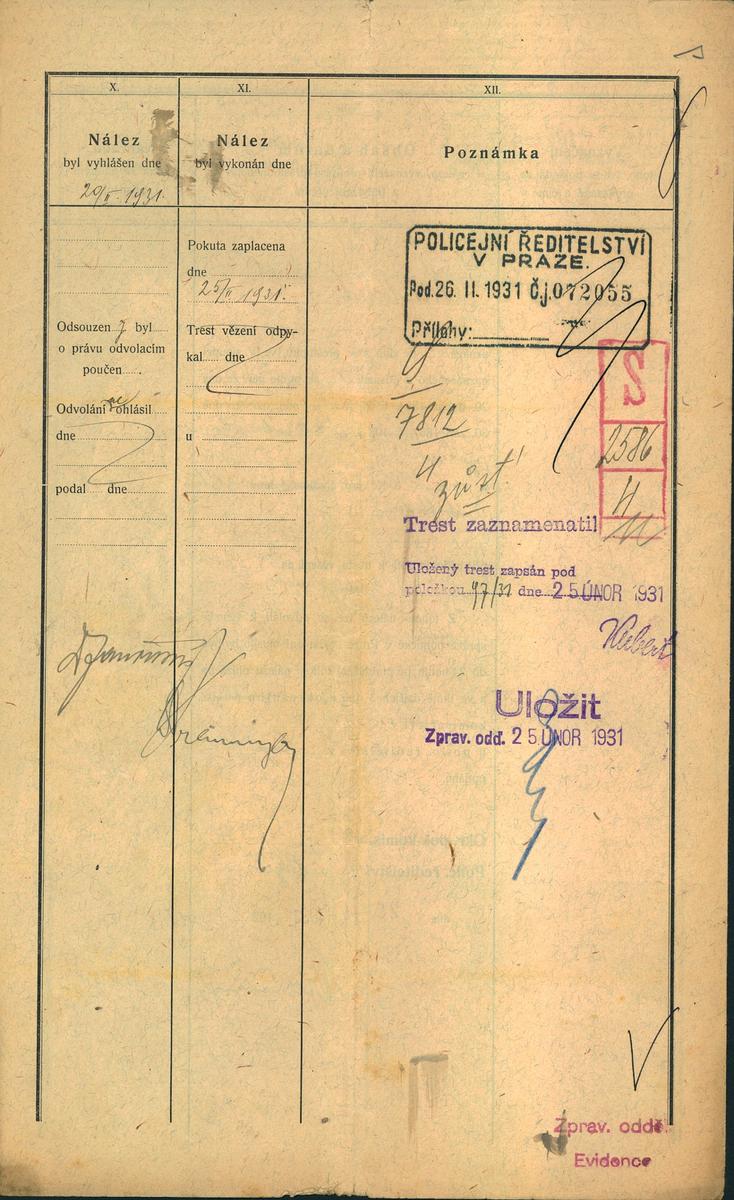 X.
Nález
byl vyhlášen dne
20/II. 1931.
Odsouzen byl
o právu odvolacím
poučen
Odvolání ne ohlásil
dne
podal dne
XI.
Nález
byl vykonán dne
Pokuta zaplacena
dne
25/II 1931.
Trest vězení odpy-
kal dne
u
XII.
Poznámka
POLICEJNÍ ŘEDITELSTVÍ
V PRAZE.
Pod. 26. II. 1931 Č.j. 072055
Přílohy:
S
7812
2586
4
11
4
zůst
Trest zaznamenatil
Uložený trest zapsán pod
položkou 97/31 dne 25. ÚNOR 1931
Uložit
Zprav. odd. 25. ÚNOR 1931
Zprav. odděl.
Evidence